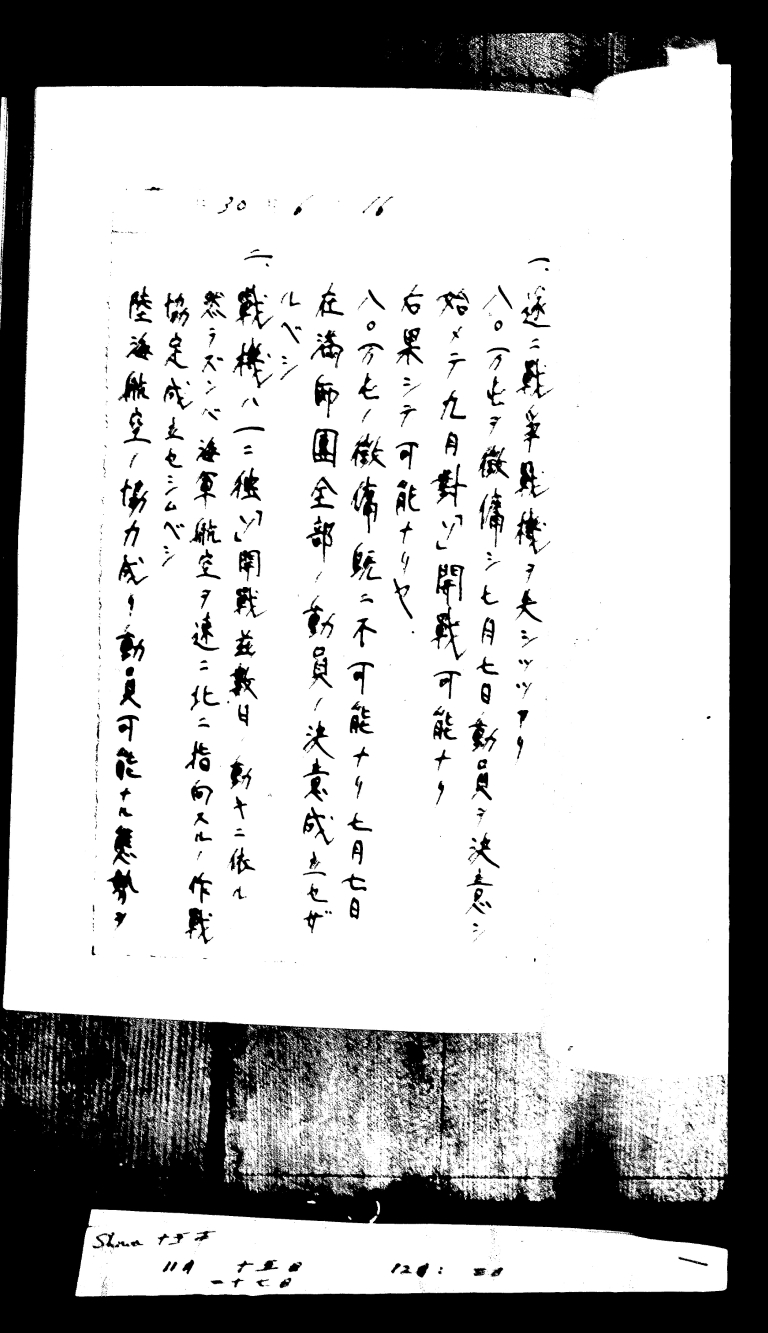 30 6 16
一、遂ニ戦争戦機ヲ失シツツアリ
八〇万屯ヲ徴傭シ七月七日動員ヲ決意シ
始メテ九月対「ソ」開戦可能ナリ
右果シテ可能ナリヤ.
八〇万屯ノ徴傭既ニ不可能ナリ七月七日
在満師團全部ノ動員ノ決意成立セザ
ルベシ
二、戦機ハ一ニ独「ソ」開戦並数日ノ動キニ依ル
然ラズンバ海軍航空ヲ速ニ北ニ指向スルノ作戦
協定成立セシムベシ
陸海航空ノ協力成リ動員可能ナル態勢ヲ
Showa 十五年
11月 十五日 12月: 三日
二十七日